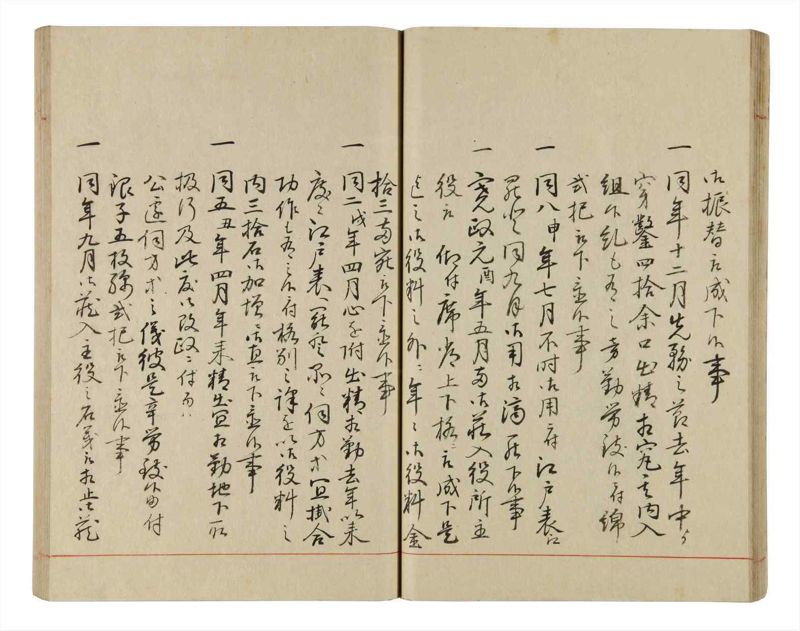 御振替被成下候事
一 同年十二月先勤之節去年中ゟ
穿鑿四拾余口出精相究其内入
組候乱も有之骨勤労致候付綿
弐把被下置候事
一 同八申年七月不時御用ニ付江戸表江
罷登同九月御用相済罷下候事
一 寛政元酉年五月両御蔵入役所主
役被仰付席者上下格ニ被成下是
迄之御役料之外ニ年々御役料金
拾三両宛被下置候事
一 同二戌年四月心を附出精相勤去年以来
度々江戸表江罷登品々伺方等宜掛合
功作も有之候付格別之訳を以御役料之
内三拾石御加増ニ直被下置候事
一 同五丑年四月年来精出宜相勤地下一統
扱行及此度御改政ニ付而ハ
公辺伺方等之儀彼是辛労致候由付
銀子五枚綿弐把被下置候事
一 同年九月御蔵入主役之名義被相止御蔵